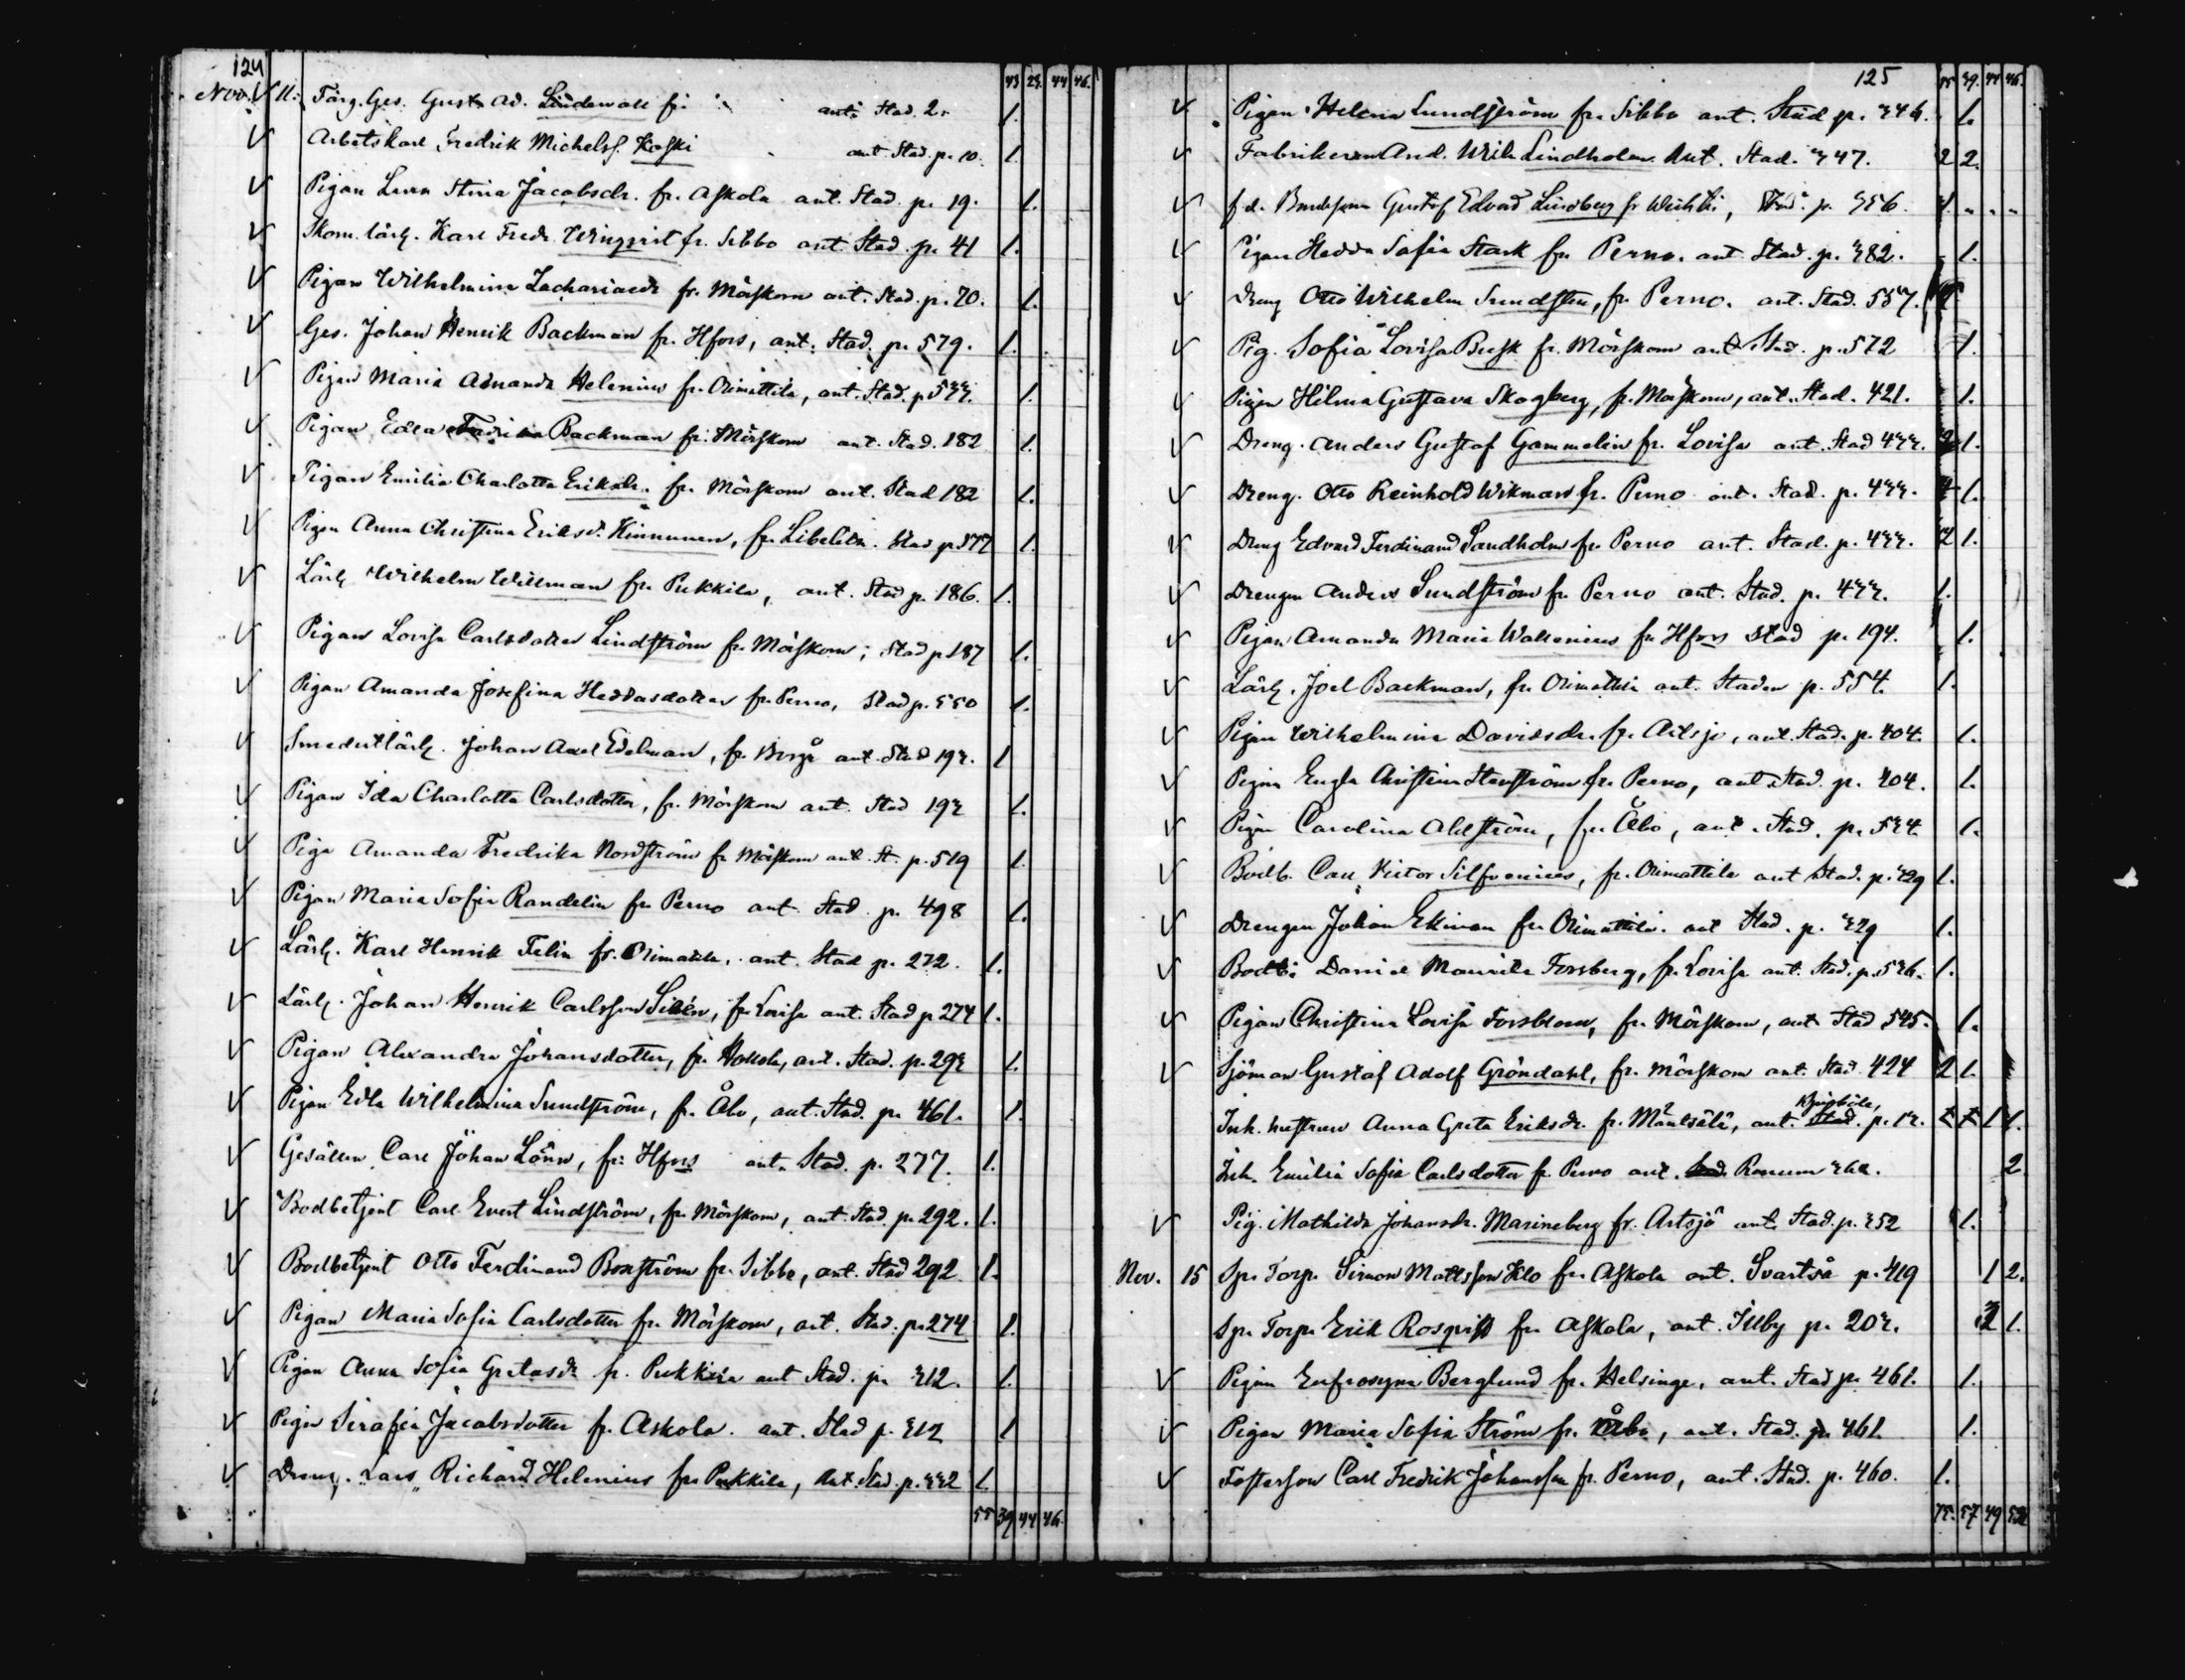 124
43 23. 44 46.
Nov. 11. Färg. Ges. Gust. Ad. Lindewall fr. ant. Stad. 2. 1.
Arbetskarl Fredrik Michelss. Koski ant. Stad. p. 10. 1
Pigan Stina Jacobsdr. fr. Askola ant. Stad. p. 19. 1.
Skom. lärl. Karl Fredr. Winqvist fr. Sibbo ant. Stad. p. 41 1.
Pigan Wilhelmina Zachariaedr fr. Mörskom ant. Stad. p. 70. 1.
Ges. Johan Henrik Backman fr. Hfors, ant. Stad. p. 579. 1.
Pigan Maria Amanda Helenius fr. Orimattila, ant. Stad. p. 533. 1.
Pigan Edla Backman fr. Mörskom ant. Stad. 182 1.
Pigan Emilia Charlotta Eriksdr. fr. Mörskom ant. Stad 182 1.
Pigan Anna Christina Eriksd. Hinnunen, fr. Libelits. Stad p. 577 1.
Lärl. Wilhelm Willman fr. Pukkila, ant. Stad p. 186. 1.
Pigan Lovisa Carlsdotter Lindström fr. Mörskom, Stad p. 187 1.
Pigan Amanda Josefina Heddasdotter fr. Perno, Stad p. 550 1.
Smedslärl. Johan Axel Edelman, fr. Borgå ant. Stad 193. 1
Pigan Ida Charlotta Carlsdotter, fr. Mörskom ant. Stad 193 1.
Piga Amanda Fredrika Nordström fr. Mörskom ant. St. p. 519 1.
Pigan Maria Sofia Randelin fr. Perno ant. Stad p. 498 1.
Lärl. Karl Henrik Felin fr. Orimattila, ant. Stad p. 272. 1.
Lärl. Johan Henrik Carlsson Silén, fr. Lovisa ant. Stad p 274 1.
Pigan Alexandra Johansdotter, fr. Hollola, ant. Stad. p. 293 1.
Pigan Edla Wilhelmina Sundström, fr. Åbo, ant. Stad. p. 461. 1.
Gesällen Carl Johan Lönn, fr. Hfors ant. Stad. p. 277. 1.
Bodbetjent Carl Evert Lindström, fr. Mörskom, ant. Stad. p. 292. 1.
Bodbetjent Otto Ferdinand Boxström fr. Sibbo, ant. Stad 292 1.
Pigan Maria Sofia Carlsdotter fr. Mörskom, ant. Stad. p. 274 1.
Pigan Anna Sofia Gretasdr fr. Pukkila ant Stad. p. 312. 1.
Pigan Serafia Jacobsdotter fr. Askola. ant. Stad p. 312 1
Dreng. Lars Richard Helenius fr. Pukkila, ant. Stad. p. 332 1.
55 39 44 46.
125
55 39. 44 46.
Pigan Helena Lundström fr. Sibbo ant. Stad p. 346. 1.
Fabrikören And. Wilh. Lindholm ant. Stad. 347. 2 2.
f.d. Gustaf Edvard Lindberg fr. Wichtis, Stad. p. 356. 1.
Pigan Hedda Sofia Stark fr. Perno. ant. Stad. p. 382. 1.
Dreng Otto Wilhelm Sundsten, fr. Perno. ant. Stad. 557.
Pig. Sofia Lovisa Busk fr. Mörskom ant Stad. p. 572 1.
Pigan Hilma Gustava Skogberg, fr. Mörskom, ant. Stad. 421. 1.
Dreng. Anders Gustaf Gammelin fr. Lovisa ant. Stad 433. 1.
Dreng. Otto Reinhold Wikman fr. Perno ant. Stad. p. 433. 1.
Dreng Edvard Ferdinand Sandholm fr. Perno ant. Stad. p. 433. 1.
Drengen Anders Sundström fr. Perno ant. Stad. p. 433. 1.
Pigan Amanda Maria Wallenius fr. Hfors Stad p. 194. 1.
Lärl. Joel Backman, fr. Orimattila ant. Staden p. 554. 1.
Pigan Wilhelmina Davidsdr. fr. Artsjö, ant. Stad. p. 404. 1.
Pigan Engla Christina Stenström fr. Perno, ant. Stad. p. 404. 1.
Pigan Carolina Ahlström, fr. Åbo, ant. Stad. p. 534. 1.
Bodb. Carl Victor Silfvenius, fr. Orimattila ant. Stad. p. 329 1.
Drengen Johan Ekman fr. Orimattila. ant. Stad. p. 329 1.
Bodb: Daniel Mauritz Forsberg, fr. Lovisa ant. Stad. p. 536. 1.
Pigan Christina Lovisa Forsblom, fr. Mörskom, ant Stad 545. 1.
Sjöman Gustaf Adolf Gröndahl, fr. Mörskom ant. Stad. 424 2 1.
Inh. hustrun Anna Greta Eriksdr. fr. Mäntsälä, ant. Stad. p. 13. 1 1.
Inh. Emilia Sofia Carlsdotter fr. Perno ant. 2
Pig. Mathilda Johansdr. Marineberg fr. Artsjö ant. Stad. p. 352 1.
Nov. 15 Sp. Torp. Simon Mattsson Klo fr. Askola ant. Svartså p. 419 1 2.
Sp. Torp. Erik Rosqvist fr. Askola, ant. Illby p. 203. 2 1.
Pigan Eufrosyna Berglund fr. Helsinge, ant. Stad p. 461. 1.
Pigan Maria Sofia Ström fr. Åbo, ant. Stad. p. 461. 1.
Fosterson Carl Fredrik Johansson fr. Perno, ant. Stad. p. 460. 1.
75. 57 49